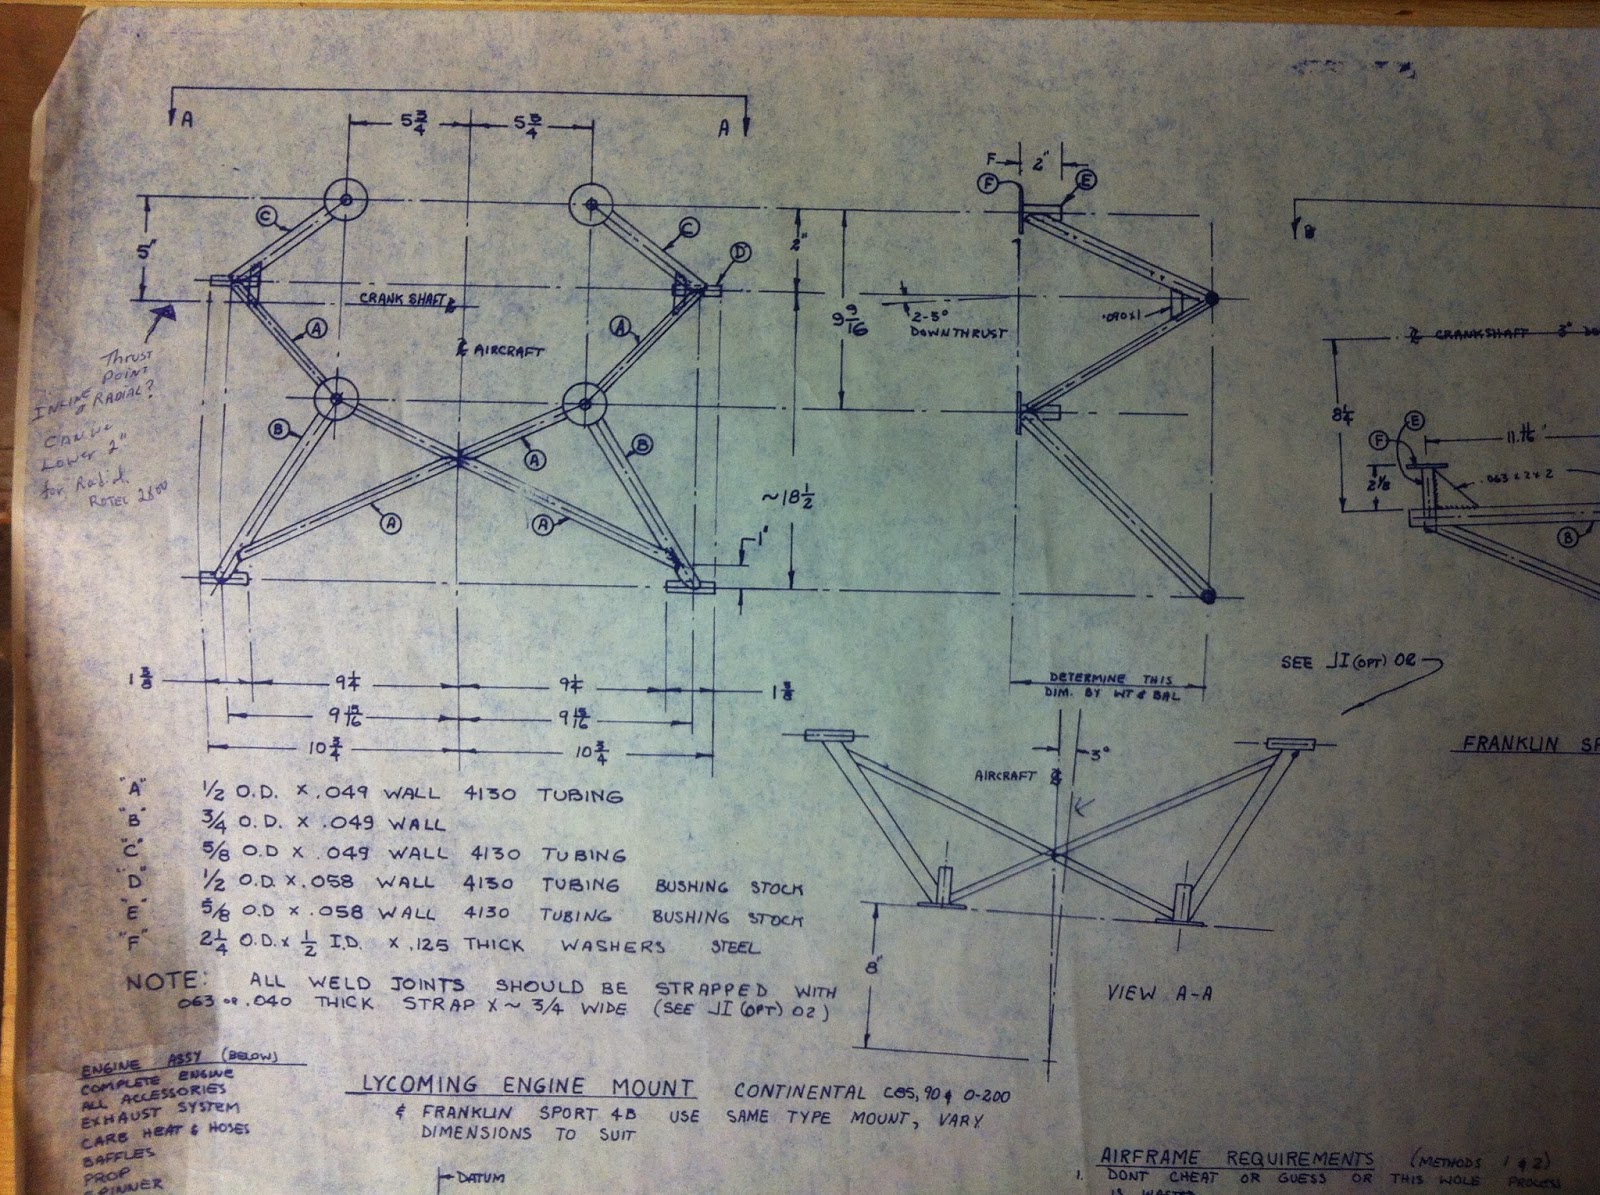 A
5 3/4
5 3/4
A
C
5"
C
D
CRANK SHAFT ℄
A
A
℄ AIRCRAFT
B
A
B
A
A
2"
~18 1/2
1"
Thrust
Point
INLINE
RADIAL?
Lower 2"
for Radial
ROTEC 2800
F
2"
F
E
9 9/16
2-3°
DOWNTHRUST
.090X1
DETERMINE THIS
DIM. BY WT & BAL
B
℄ CRANKSHAFT 3°
8 1/4
E
F
2 1/8
.063 X 2 X 2
B
SEE JI (OPT) 02
1 3/8
9 1/4
9 1/4
1 3/8
9 15/16
9 15/16
10 3/4
10 3/4
"A" 1/2 O.D. X .049 WALL 4130 TUBING
"B" 3/4 O.D. X .049 WALL
"C" 5/8 O.D X .049 WALL 4130 TUBING
"D" 1/2 O.D. X .058 WALL 4130 TUBING BUSHING STOCK
"E" 5/8 O.D X .058 WALL 4130 TUBING BUSHING STOCK
"F" 2 1/4 O.D. X 1/2 I.D. X .125 THICK WASHERS STEEL
NOTE: ALL WELD JOINTS SHOULD BE STRAPPED WITH
063 OR .040 THICK STRAP X ~ 3/4 WIDE (SEE JI (OPT) 02)
AIRCRAFT ℄
3°
8"
VIEW A-A
FRANKLIN
ENGINE ASSY (BELOW)
COMPLETE ENGINE
ALL ACCESSORIES
EXHAUST SYSTEM
CARB HEAT & HOSES
BAFFLES
PROP
SPINNER
LYCOMING ENGINE MOUNT CONTINENTAL C85, 90 & 0-200
& FRANKLIN SPORT 4B USE SAME TYPE MOUNT, VARY
DIMENSIONS TO SUIT
DATUM
AIRFRAME REQUIREMENTS (METHODS 1 & 2)
1. DONT CHEAT OR GUESS OR THIS WOLE PROCESS
IS WASTED